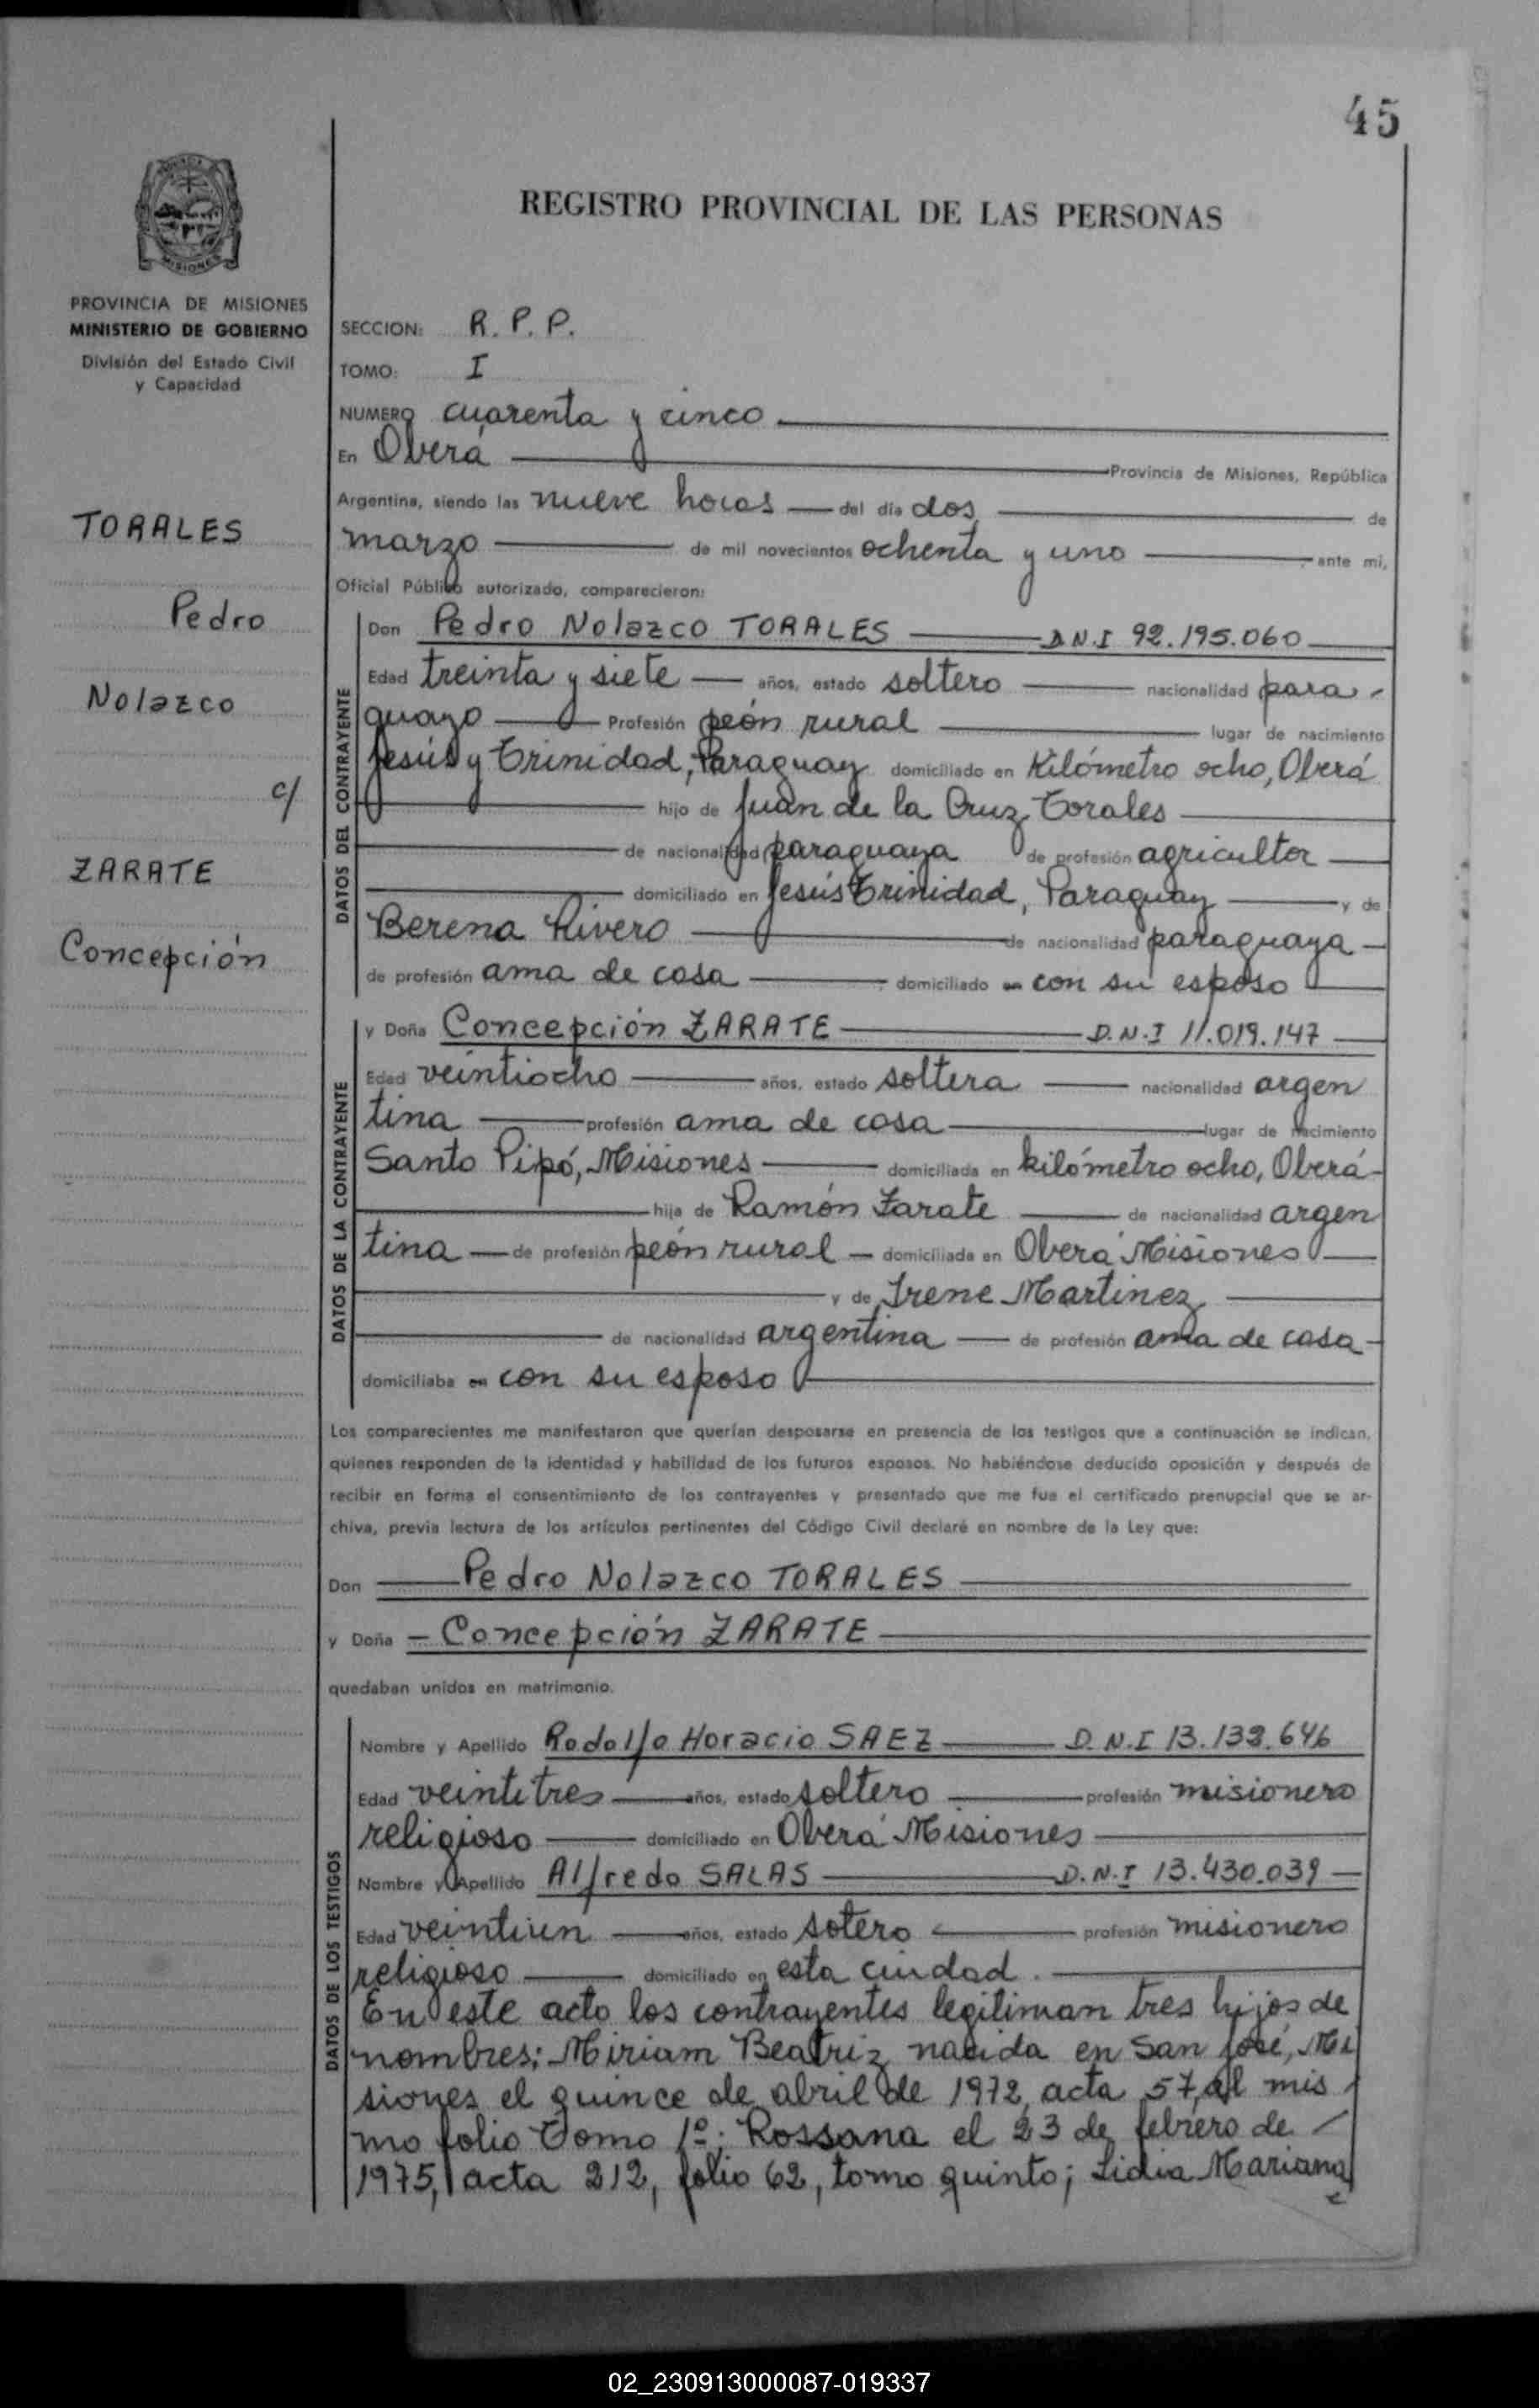 45
REGISTRO PROVINCIAL DE LAS PERSONAS
MISIONES
PROVINCIA DE MISIONES
MINISTERIO DE GOBIERNO
División del Estado Civil
y Capacidad
TORALES
Pedro
Nolazco
c/
ZARATE
Concepción
SECCION: R. P. P.
TOMO: I
NUMERO cuarenta y cinco
En Oberá Provincia de Misiones, República
Argentina, siendo las nueve horas del día dos de
marzo de mil novecientos ochenta y uno ante mi,
Oficial Público autorizado, comparecieron:
DATOS DEL CONTRAYENTE
Don Pedro Nolazco TORALES D.N.I 92.195.060
Edad treinta y siete años, estado soltero nacionalidad para-
guayo Profesión peón rural lugar de nacimiento
Jesús y Trinidad, Paraguay domiciliado en Kilómetro ocho, Oberá
hijo de Juan de la Cruz Torales
de nacionalidad paraguaya de profesión agricultor
domiciliado en Jesús Trinidad, Paraguay y de
Berena Rivero de nacionalidad paraguaya
de profesión ama de casa domiciliado en con su esposo
DATOS DE LA CONTRAYENTE
y Doña Concepción ZARATE D.N.I 11.019.147
Edad veintiocho años, estado soltera nacionalidad argen
tina profesión ama de casa lugar de nacimiento
Santo Pipó, Misiones domiciliada en kilómetro ocho, Oberá
hija de Ramón Zarate de nacionalidad argen
tina de profesión peón rural domiciliada en Oberá Misiones
y de Irene Martinez
de nacionalidad argentina de profesión ama de casa
domiciliaba en con su esposo
Los comparecientes me manifestaron que querían desposarse en presencia de los testigos que a continuación se indican,
quienes responden de la identidad y habilidad de los futuros esposos. No habiéndose deducido oposición y después de
recibir en forma el consentimiento de los contrayentes y presentado que me fue el certificado prenupcial que se ar-
chiva, previa lectura de los artículos pertinentes del Código Civil declaré en nombre de la Ley que:
Don Pedro Nolazco TORALES
y Doña Concepción ZARATE
quedaban unidos en matrimonio.
DATOS DE LOS TESTIGOS
Nombre y Apellido Rodolfo Horacio SAEZ D.N.I 13.139.646
Edad veintitres años, estado soltero profesión misionero
religioso domiciliado en Oberá Misiones
Nombre y Apellido Alfredo SALAS D.N.I 13.430.039
Edad veintiun años, estado sotero profesión misionero
religioso domiciliado en esta ciudad.
En este acto los contrayentes legitiman tres hijos de
nombres: Miriam Beatriz nacida en San José, Mi
siones el quince de abril de 1972, acta 57, al mis
mo folio Tomo 1º; Rossana el 23 de febrero de
1975, acta 212, folio 62, tomo quinto; Lidia Mariana
02_230913000087-019337